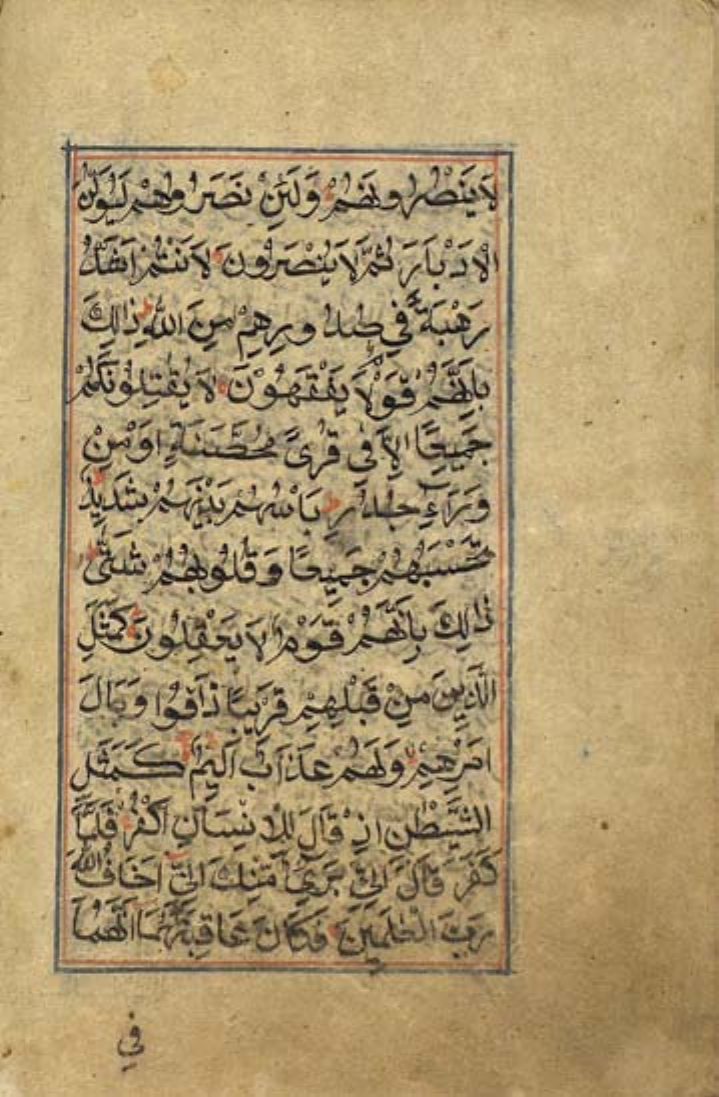 لَا يَنْصُرُونَهُمْ وَلَئِنْ نَصَرُوهُمْ لَيُوَلُّنَّ
الْاَدْبَارَ ثُمَّ لَا يُنْصَرُونَ لَاَنْتُمْ اَشَدُّ
رَهْبَةً فِي صُدُورِهِمْ مِنَ اللّٰهِ ذَالِكَ
بِاَنَّهُمْ قَوْمٌ لَا يَفْقَهُوْنَ لَا يُقٰتِلُوْنَكُمْ
جَمِيعًا اِلَّا فِي قُرًى مُحَصَّنَةٍ اَوْ مِنْ
وَرَآءِ جُدُرٍ بَاْسُهُمْ بَيْنَهُمْ شَدِيدٌ
تَحْسَبُهُمْ جَمِيعًا وَقُلُوبُهُمْ شَتّٰى
ذَالِكَ بِاَنَّهُمْ قَوْمٌ لَا يَعْقِلُونَ كَمَثَلِ
الَّذِينَ مِنْ قَبْلِهِمْ قَرِيبًا ذَاقُوا وَبَالَ
اَمْرِهِمْ وَلَهُمْ عَذَابٌ اَلِيمٌ كَمَثَلِ
الشَّيْطٰنِ اِذْ قَالَ لِلْاِنْسَانِ اكْفُرْ فَلَمَّا
كَفَرَ قَالَ اِنِّي بَرِيٓءٌ مِنْكَ اِنِّيٓ اَخَافُ اللّٰهَ
رَبَّ الْعٰلَمِينَ فَكَانَ عَاقِبَتَهُمَا اَنَّهُمَا
فِي